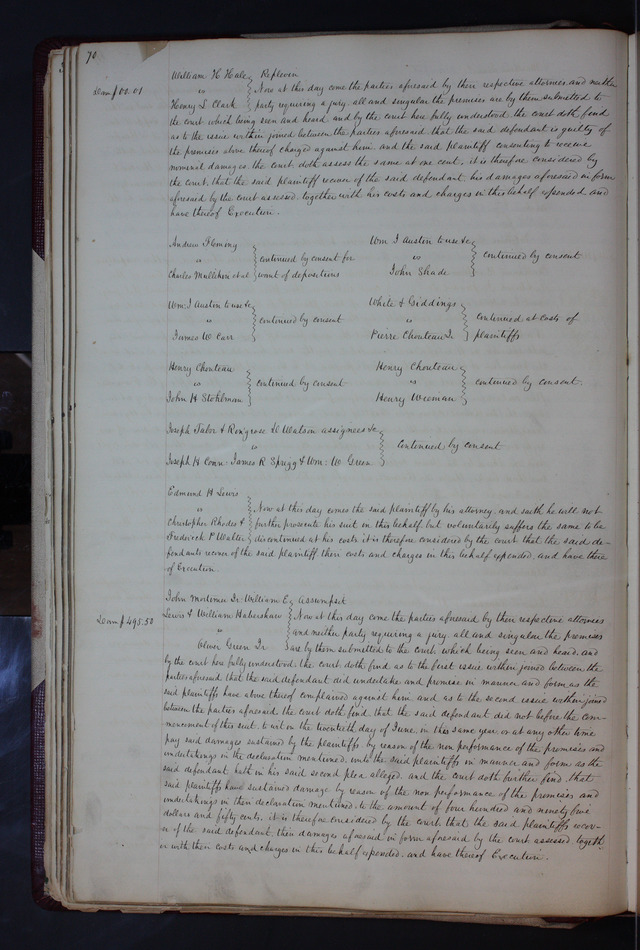 70
William H Hale } Replevin
Dam $00.01 vs } Now at this day come the parties aforesaid by their respective attornies, and neither
Henry L Clark } party requiring a jury, all and singular the premises are by them submitted to
the court which being seen and heard, and by the court here fully understood, the court doth find
as to the issue within joined between the parties aforesaid that the said defendant is guilty of
the premises above thereof charged against him and the said plaintiff consenting to receive
nominal damages, the court doth assess the same at one cent, it is therefore considered by
the court, that the said plaintiff recover of the said defendant, his damages aforesaid in form
aforesaid by the court assessed, together with his costs and charges in this behalf expended and
have thereof Execution.
Andrew Fleming
vs } continued by consent for
Charles Mullikin et al } want of depositions
Wm I Austin to use &c
vs } continued by consent
John Shade
Wm I Austin to use &c
vs } continued by consent
James W Carr
White & Giddings
vs } continued at costs of
Pierre Chouteau Jr } plaintiffs
Henry Chouteau
vs } continued by consent
John H Stohlman
Henry Chouteau
vs } continued by consent.
Henry Wieman
Joseph Tabor & D Watson assignees &c
vs } continued by consent
Joseph H Conn: James R Sprigg & Wm: W Green
Edmund H Lewis
vs } Now at this day comes the said plaintiff by his attorney, and saith he will not
Christopher Rhodes & } further prosecute his suit in this behalf, but voluntarily suffers the same to be
Frederick P Walter } discontinued at his costs it is therefore considered by the court that the said de-
fendants recover of the said plaintiff their costs and charges in this behalf expended, and have there
of Execution.
John Jr William E } Assumpsit
Dam $495.50 Lewis & William Habershaw } Now at this day come the parties aforesaid by their respective attornies
vs } and neither party requiring a jury, all and singular the premises
Oliver Green Jr } are by them submitted to the court, which being seen and heard, and
by the court here fully understood, the court doth find as to the first issue within joined between the
parties aforesaid, that the said defendant did undertake and promise in manner and form as the
said plaintiffs have above thereof complained against him and as to the second issue within joined
between the parties aforesaid, the court doth find, that the said defendant did not before the com-
mencement of this suit, to wit on the twentieth day of June, in this same year, or at any other time
pay said damages sustained by the plaintiffs, by reason of the non performance of the promises and
undertakings in the declaration mentioned, unto the said plaintiffs in manner and form as the
said defendant hath in his said second plea alleged and the court doth further find, that
said plaintiffs have sustained damage by reason of the non performance of the promises and
undertakings in their declaration mentioned, to the amount of four hundred and ninety five
dollars and fifty cents, it is therefore considered by the court, that the said plaintiffs recov-
er of the said defendant, their damages aforesaid in form aforesaid by the court assessed togeth-
er with their costs and charges in this behalf expended, and have thereof Execution.